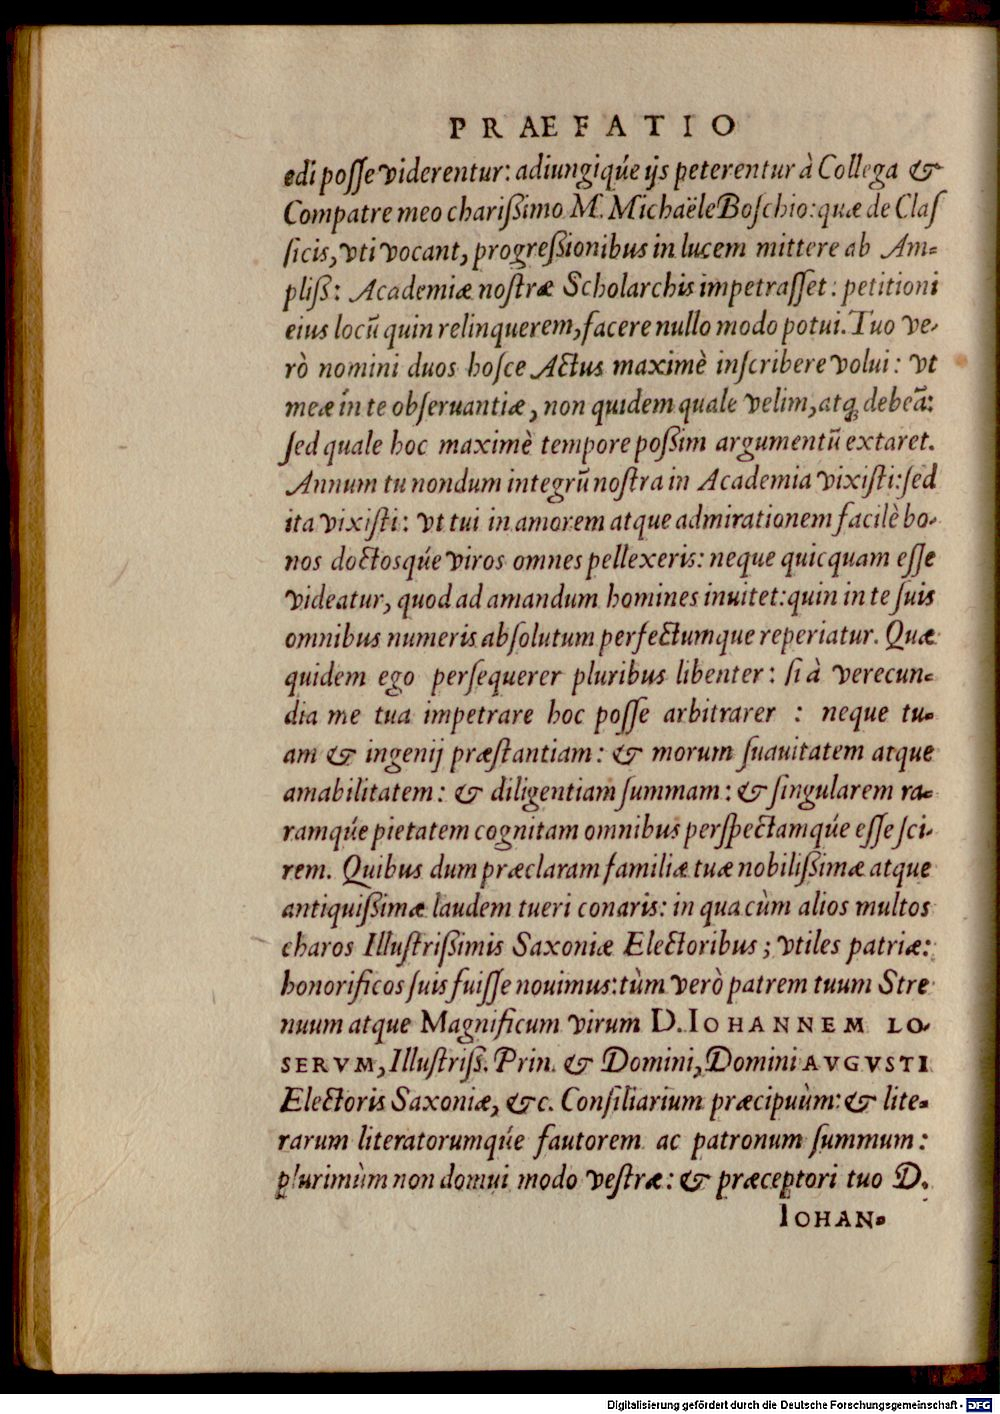 PRAEFATIO
edi posse viderentur: adiungiqúe ijs peterentur à Collega &
Compatre meo charißimo M. Michaële Boschio: quæ de Clas
sicis, vti vocant, progreßionibus in lucem mittere ab Am-
pliß: Academiæ nostræ Scholarchis impetrasset: petitioni
eius locũ quin relinquerem, facere nullo modo potui. Tuo ve-
rò nomini duos hosce Actus maximè inscribere volui: vt
meæ in te obseruantiæ, non quidem quale velim, atq; debeã:
sed quale hoc maximè tempore poßim argumentũ extaret.
Annum tu nondum integrũ nostra in Academia vixisti: sed
ita vixisti: vt tui in amorem atque admirationem facilè bo-
nos doctosqúe viros omnes pellexeris: neque quicquam esse
videatur, quod ad amandum homines inuitet: quin in te suis
omnibus numeris absolutum perfectumque reperiatur. Quæ
quidem ego persequerer pluribus libenter: si à verecun-
dia me tua impetrare hoc posse arbitrarer : neque tu-
am & ingenij præstantiam: & morum suauitatem atque
amabilitatem: & diligentiam summam: & singularem ra-
ramqúe pietatem cognitam omnibus perspectamqúe esse sci-
rem. Quibus dum præclaram familiæ tuæ nobilißimæ atque
antiquißimæ laudem tueri conaris: in qua cùm alios multos
charos Illustrißimis Saxoniæ Electoribus; vtiles patriæ:
honorificos suis fuisse nouimus: tùm verò patrem tuum Stre
nuum atque Magnificum virum D. IOHANNEM LO-
SERVM, Illustriß. Prin. & Domini, Domini AVGVSTI
Electoris Saxoniæ, &c. Consiliarium præcipuùm: & lite-
rarum literatorumqúe fautorem ac patronum summum:
plurimùm non domui modò vestræ: & præceptori tuo D.
IOHAN-
Digitalisierung gefördert durch die Deutsche Forschungsgemeinschaft - DFG